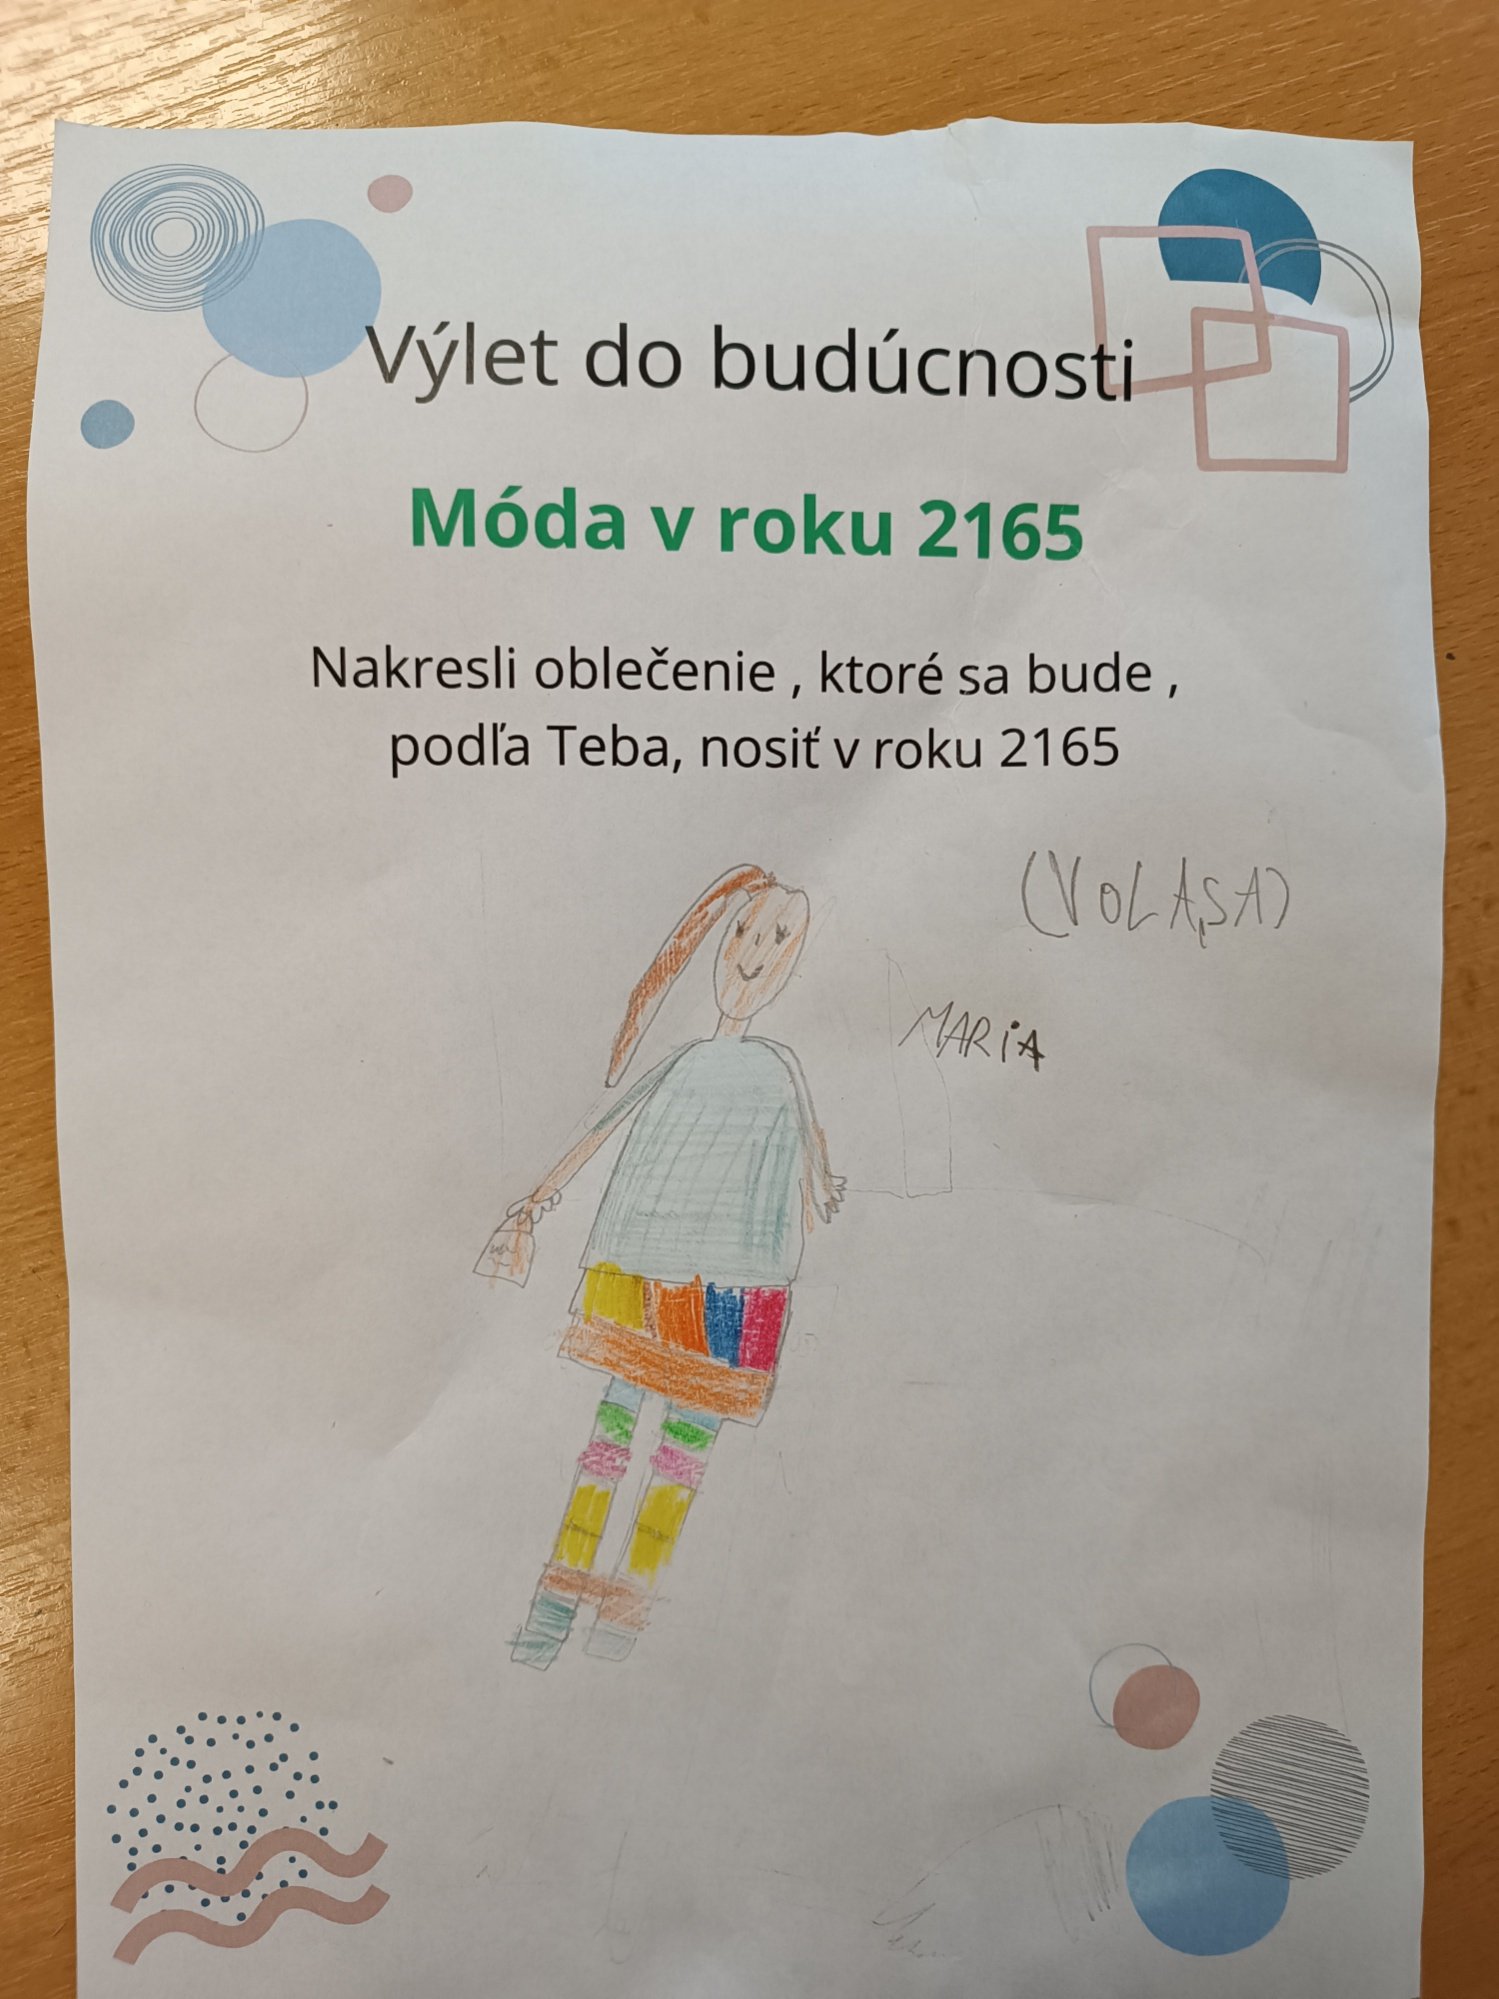 Výlet do budúcnosti
Móda v roku 2165
Nakresli oblečenie , ktoré sa bude ,
podľa Teba, nosiť v roku 2165
(VOLA,SA)
MARiA